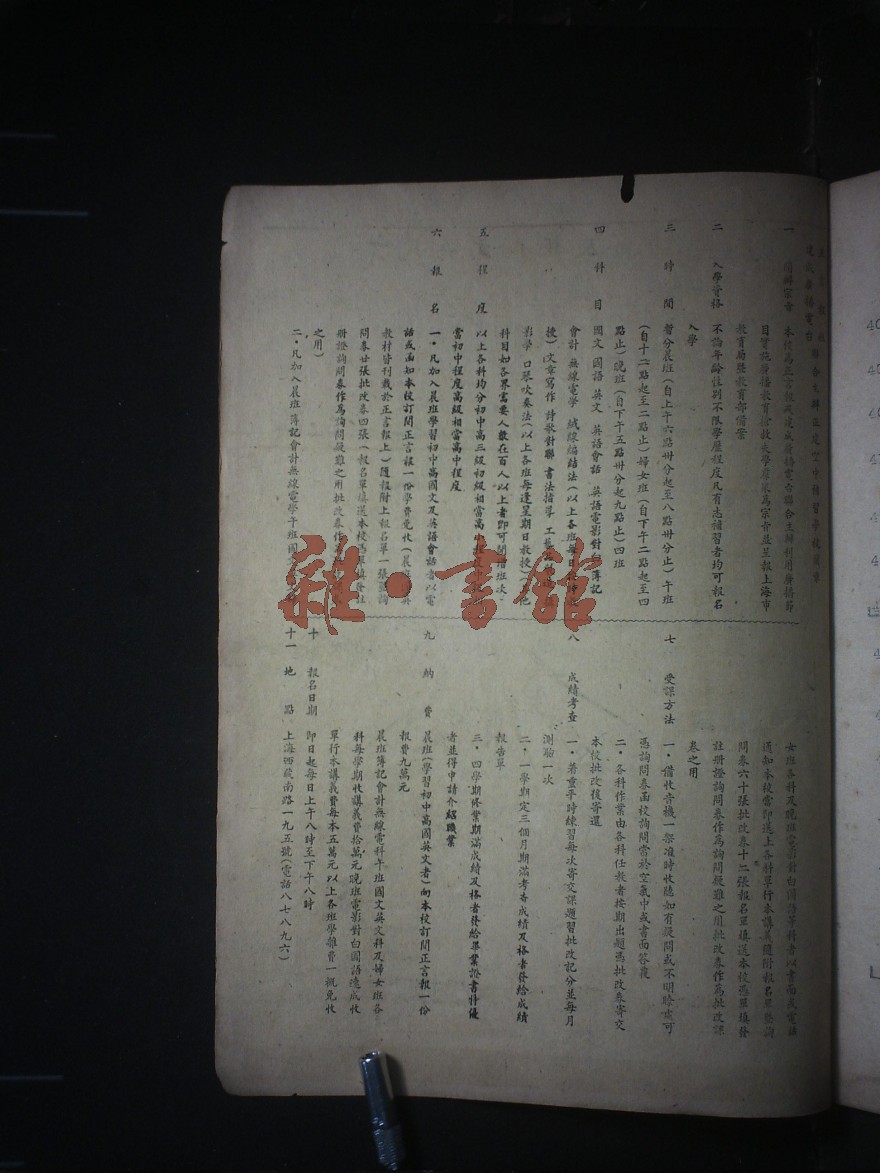 建成廣播電台
一 開辦宗旨 本校為正言報及建成廣播電台聯合主辦利用廣播節
目實施廣播教育播救失學廣衆為宗旨並呈報上海市
教育局暨教育部備案
二 入學資格 不論年齡性別不限學歷程度凡有志補習者均可報名
入學
三 時間 暫分晨班(自上午六點卅分起至八點卅分止)午班
(自十二點起至二點止)婦女班(自下午二點起至四
點止)晚班(自下午五點卅分起九點止)四班
四 科目 國文 國語 英文 英語會話 英語電影對白 簿記
會計 無線電學 絨線編結法(以上各班每日
授)文章寫作 詩歌對聯 書法指導 工
影學 口琴吹奏法(以上各班每逢星期日教授)其他
科目如各界需要人數在百人以上者即可開増班次
五 程度 以上各科均分初中高三級初級相當高小
當初中程度高級相當高中程度
六 報名 一・凡加入晨班學習初中高國文及英語會話者以電
話或函知本校訂閱正言報一份學費免收(晨班
教材皆刊載於正言報上)隨報附上報名單一張
問券廿張批改券四張(報名單填送本校憑單填發註
冊證詢問券作為詢問疑難之用批改券作
之用)
二・凡加入晨班簿記會計無線電學午班國文
女班各科及晚班電影對白國語等科者以書面或電話
通知本校當即送上各科單行本講義隨附報名單
問券六十張批改券十二張報名單填送本校憑單填發
註冊證詢問券作為詢問疑難之用批改券作為批改課
卷之用
七 受課方法 一・備收音機一架准時收聽如有疑問或不明瞭處可
憑詢問券函校詢問當於空氣中或書面答覆
二・各科作業由各科任教者按期出題憑批改券寄交
本校批改後寄還
八 成績考查 一・着重平時練習每次寄交課題習批改記分並每月
測驗一次
二・一學期定三個月期滿考查成績及格者發給成績
報告單
三・四學期修業期滿成績及格者發給畢業證書特優
者並得申請介紹職業
九 納費 晨班(學習初中高國英文者)向本校訂閱正言報一份
報費九萬元
晨班簿記會計無線電科午班國文英文科及婦女班各
科每學期收講義費拾萬元晚班電影對白國語速成收
單行本講義費每本五萬元以上各班學雜費一概免收
十 報名日期 即日起每日上午八時至下午八時
十一 地點 上海西藏南路一九五號(電話八七八九六)
雜・書館